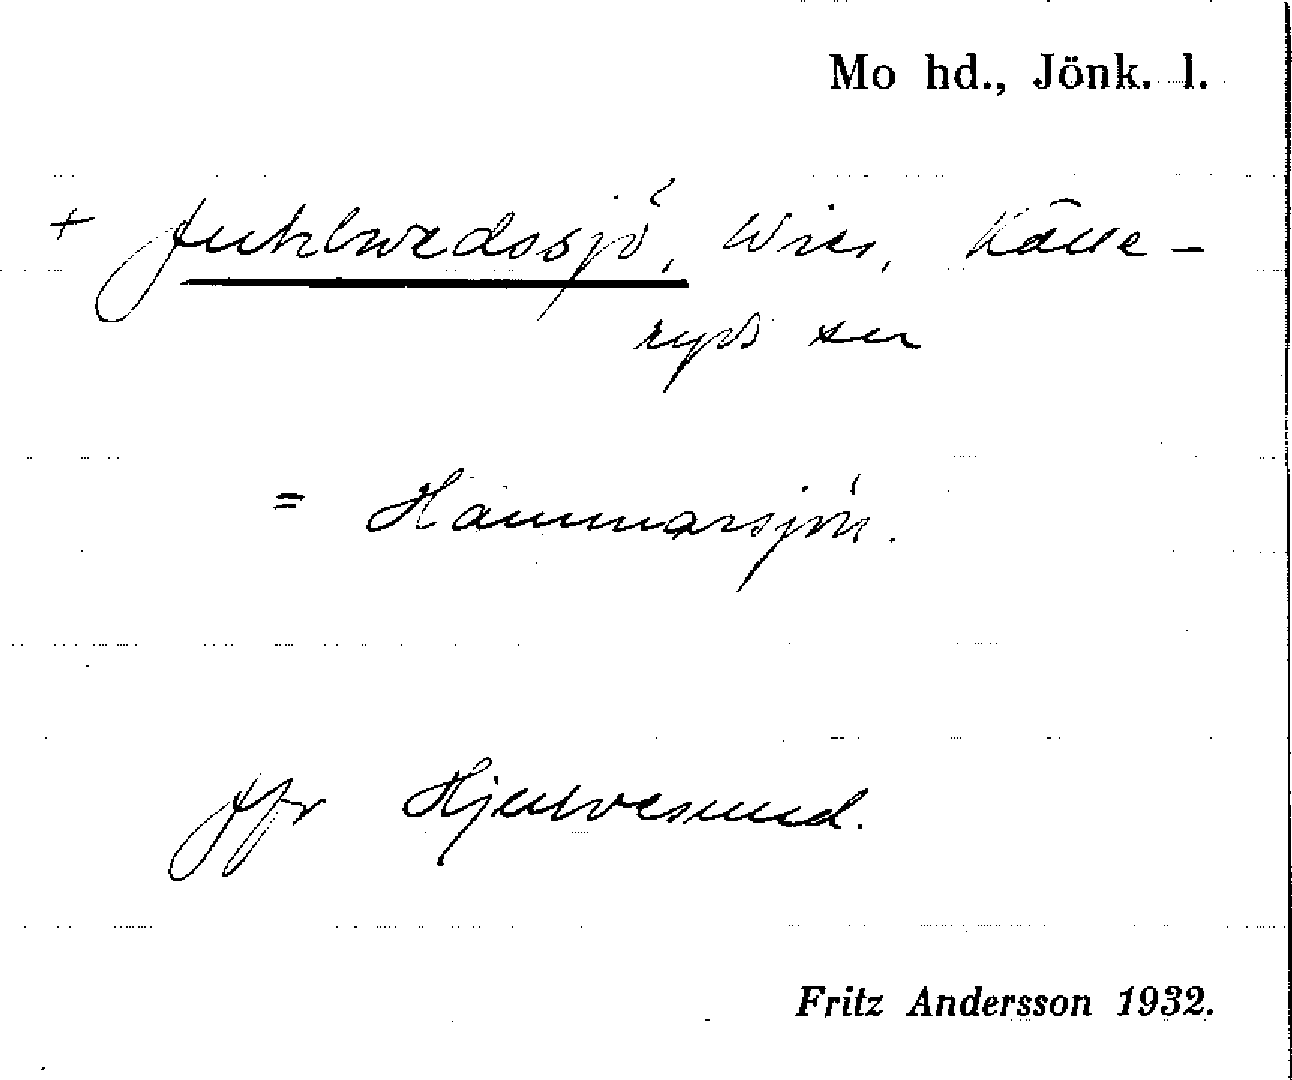 Mo hd., Jönk. l.
+ Juhlwedssjö, Wies, Kålle-
ryds sn
= Hammarsjön.
Jfr Hjulvesund.
Fritz Andersson 1932.